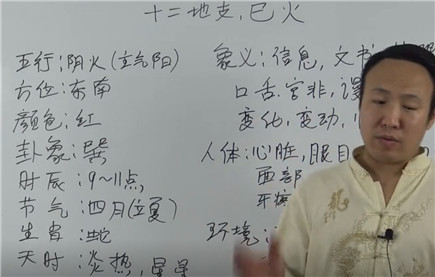 十二地支,巳火
五行:阴火(立气阳)
方位:东南
颜色:红
卦象:巽
时辰:9~11点,
节气:四月(立夏)
生肖:蛇
天时:炎热,星星
象义:信息,文书
口舌.官非,
变化,变动,
人体:心脏,眼目
面部
牙疼
环境: